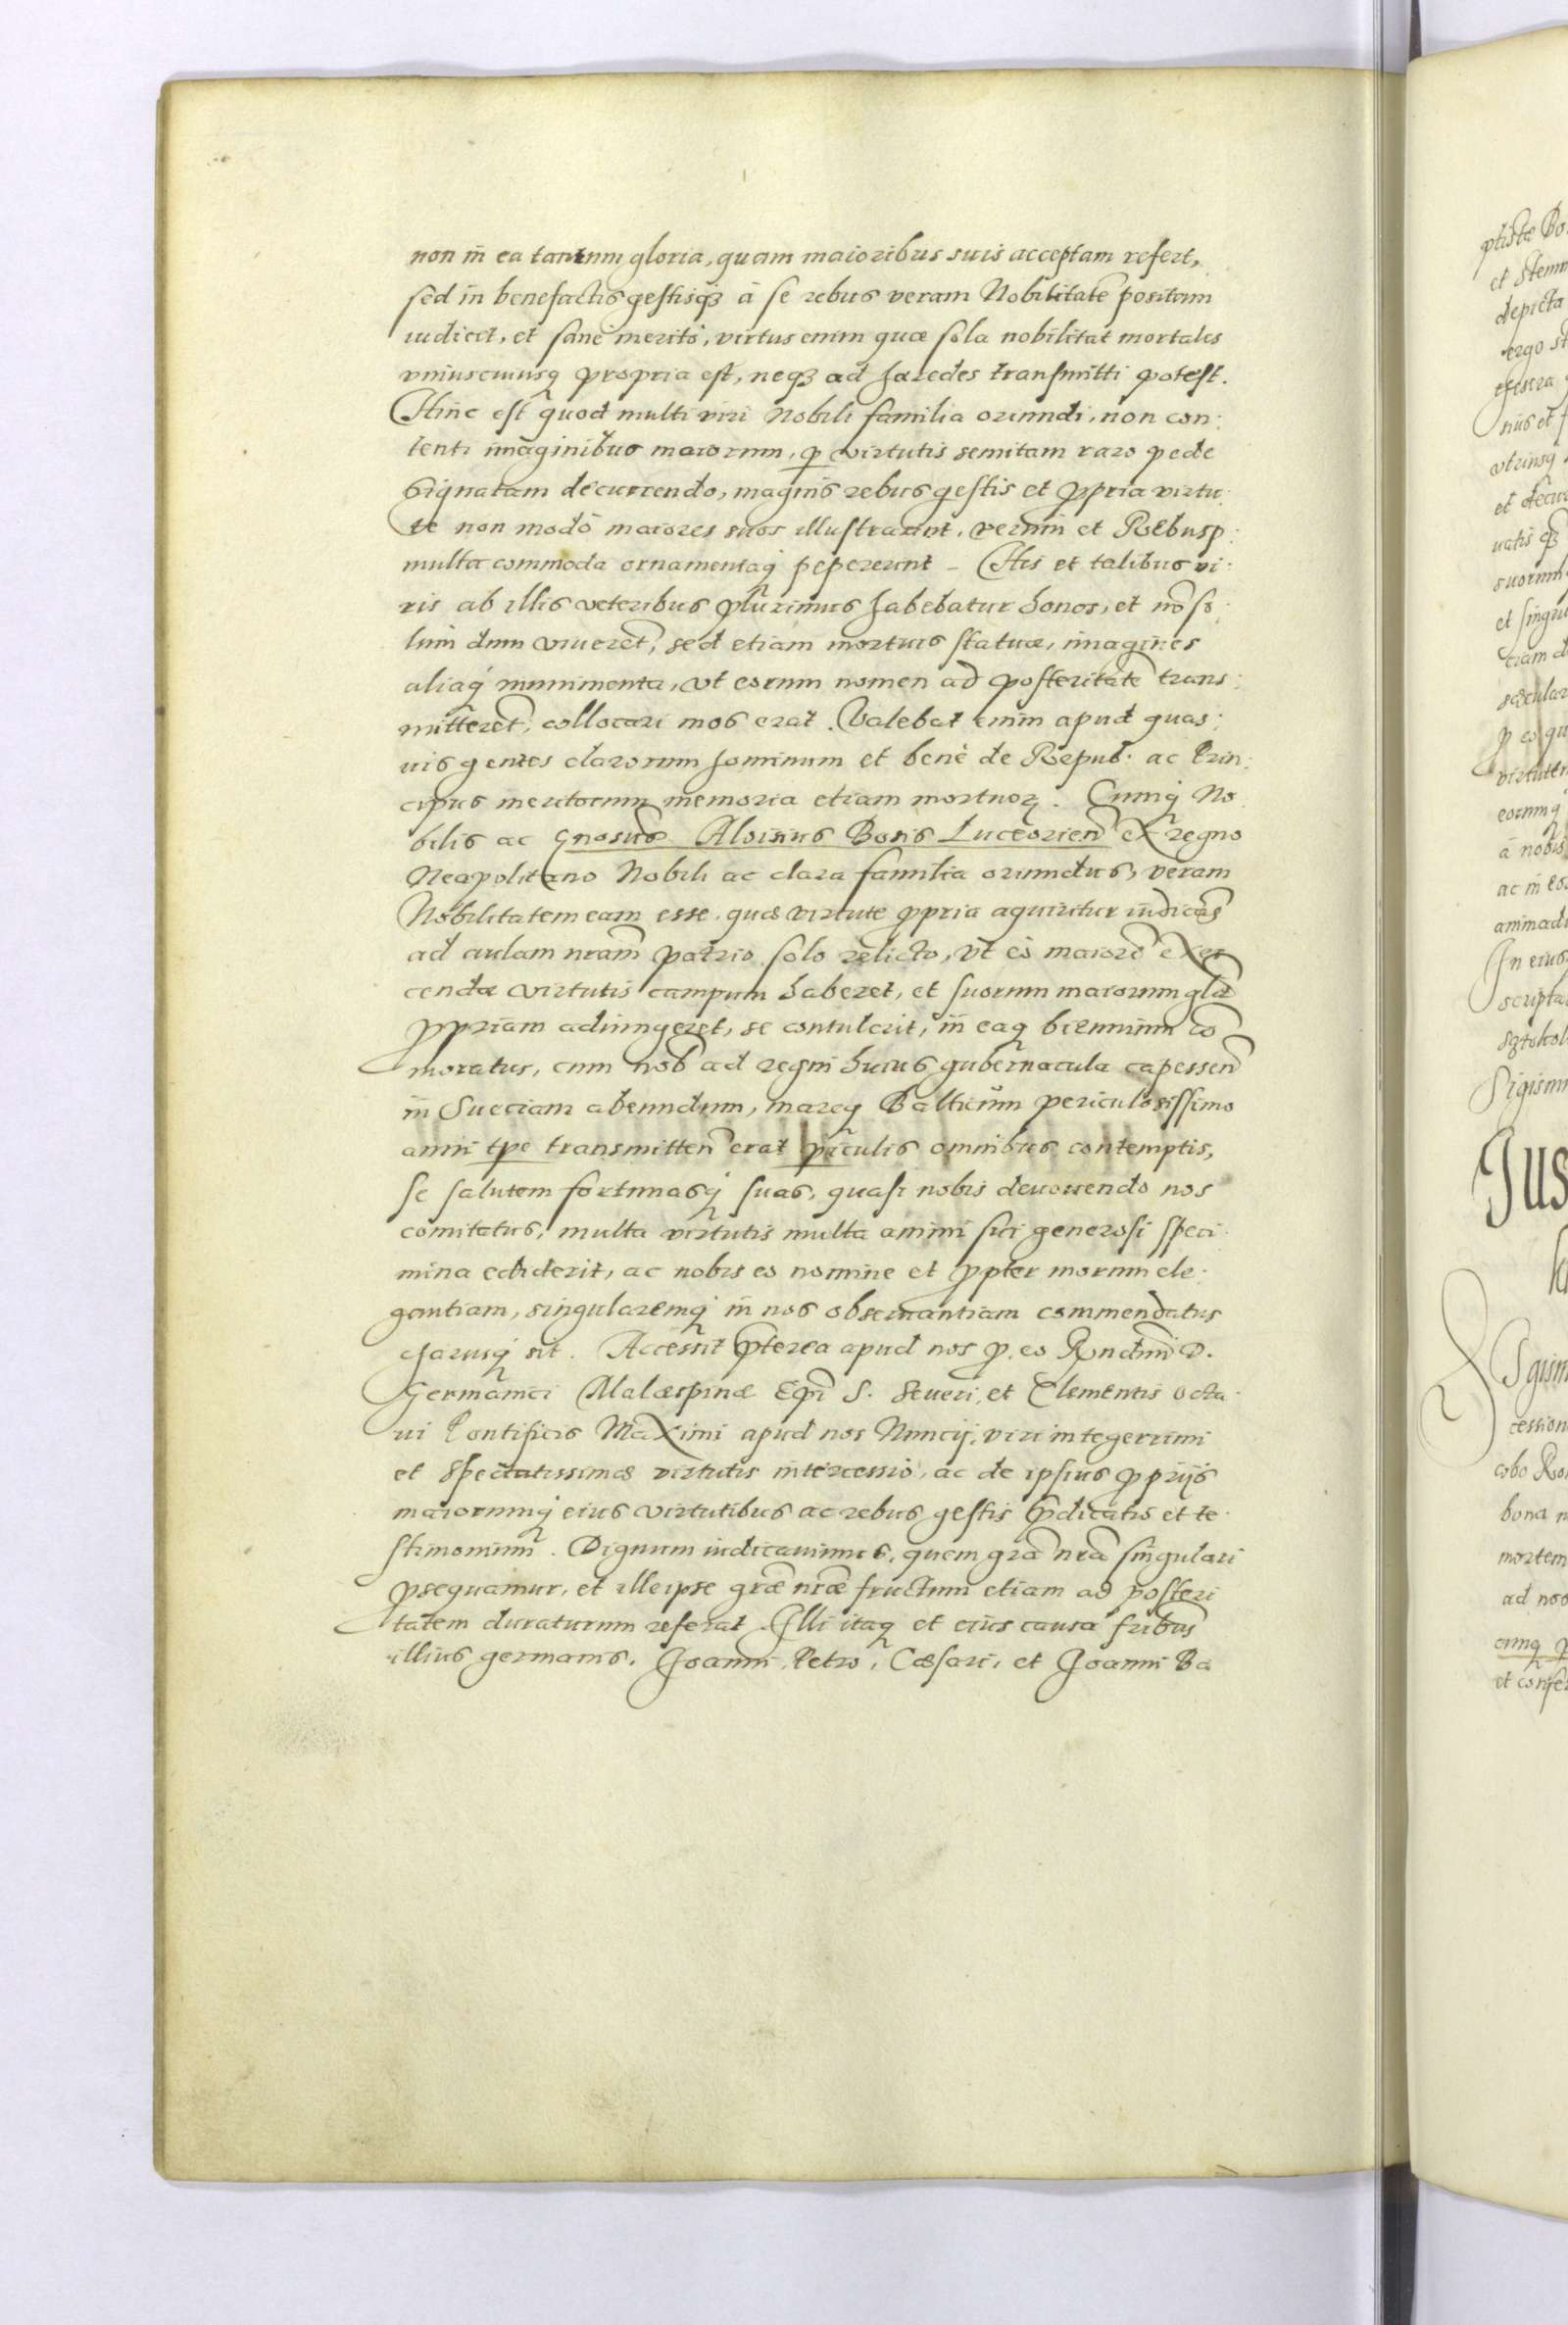 non in ea tantum gloria, quam maioribus suis acceptam refert,
sed in benefactis gestisqꝫ à se rebus veram Nobilitatē positam
iudicet, et sanè meritò, virtus enim quæ sola nobilitat mortales
vniuscuiusq̨ propria est, neqꝫ ad hæredes transmitti potest.
Hinc est quod multi viri Nobili familia oriundi, non con:
tenti imaginibus maiorum, ꝑ virtutis semitam raro pede
signatam decurrendo, magnis rebus gestis et ꝓpria virtu:
te non modò maiores suos illustrarint, verùm et Rebusp:
multa commoda ornamentaq̨ pepererunt – His et talibus vi:
ris ab illis veteribus plurimus habebatur honos, et nō so:
lùm dum viuerēt, sed etiam mortuis statuæ, imagines
aliaq̨ munimenta, vt eorum nomen ad posteritatē trans:
mitterēt, collocari mos erat. Valebat enim apud quas:
uis gentes clarorum hominum et benè de Repub: ac Prin:
cipibus meritorum memoria etiam mortuoꝝ. Cumq̨ No
bilis ac Gnosus Aloisius Bonis Luceorien̄ ex regno
Neapolitano Nobili ac clara familia oriundus, veram
Nobilitatem eam esse, quæ virtute ꝓpria aquiritur iudicās
ad aulam nram̄ patrio solo relicto, vt eò maiorē exer
cendæ virtutis campum haberet, et suorum maiorum glæ
ꝓpriam adiungeret, se contulerit, in eaq̨ biennium cō
moratus, cum nob̄ ad regni huius gubernacula capessen̄
in Sueciam abeundum, mareq̨ Balticùm periculosissimo
anni tp̄e transmitten̄ erat ꝑiculis omnibus contemptis,
se salutem fortunasq̨ suas, quasi nobis deuouendo nos
comitatus, multa virtutis multa animi sui generosi speci:
mina ediderit, ac nobis eo nomine et ꝓpter morum ele:
gantiam, singularemq̨ in nos obseruantiam commendatus
charusq̨ sit. Accessit p̄terea apud nos ꝓ eo Rn̄dmi D.
Germanici Malæspinæ Ep̄i S. Seueri, et Clementis octa:
ui Pontificis Maximi apud nos Nuncij, viri integerrimi
et spectatissimæ virtutis intercessio, ac de ipsius ꝓprijs
maiorumq̨ eius virtutibus ac rebus gestis p̄dicatio et te:
stimonium. Dignum iudicauimus, quem grā nrā singulari
ꝓsequamur, et ille ipse græ nræ fructum etiam ad posteri
tatem duraturum referat. Illi itaq̨ et eius causa fribus
illius germanis. Joanni, Petro, Cæsari, et Joanni Ba